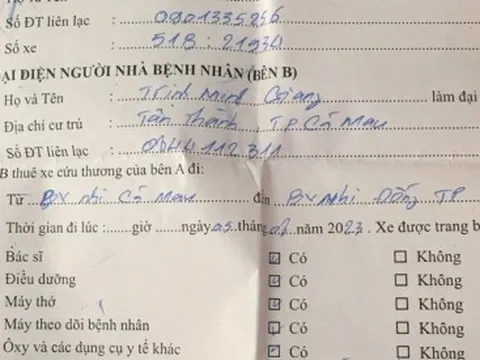 Số ĐT liên lạc : 0901335256
Số xe : 51B : 21934
ĐẠI DIỆN NGƯỜI NHÀ BỆNH NHÂN (BÊN B)
Họ và Tên : Trịnh Minh Giang làm đại
Địa chỉ cư trú : Tân Thành, TP Cà Mau
Số ĐT liên lạc : 0944112311
B thuê xe cứu thương của bên A đi:
Từ BV nhi Cà Mau đến BV Nhi Đồng TP
Thời gian đi lúc :......giờ ......ngày 05 tháng năm 2023. Xe được trang b
Bác sĩ ☑ Có ☐ Không
Điều dưỡng ☑ Có ☐ Không
Máy thở ☑ Có ☐ Không
Máy theo dõi bệnh nhân ☑ Có ☐ Không
Ôxy và các dụng cụ y tế khác ☑ Có ☐ Không